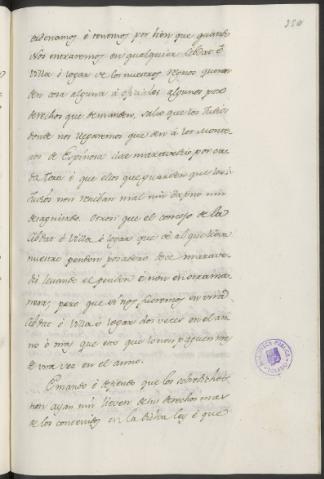 ordenamos é tenemos por bien que quando
Nos entraremos en qualquier Cibdat ó
Villa ó logar de los nuestros Regnos que non
den cosa alguna á oficiales algunos por
derechos que demanden, salvo que los Judios
donde nos llegaremos que den á los Monte-
ros de Espinosa doce maravedis por ca-
da Tora é que ellos que guarden que los
Judios non reciban mal nin daño nin
desaguisado. Otrosi que el concejo de la
Cibdat ó Villa ó logar que dé al que lleva
nuestro pendon posadero doce marave-
dis levando el pendon é non en otra ma-
nera, pero que si nos fueremos en una
Cibdat ó Villa ó logar dos veces en el an-
no ó mas que esto que lo non paguen mas
de una vez en el anno.
E mando é defiendo que los sobredichos
non ayan nin lieven de sus derechos mas
de los contenidos en la dicha ley é que
BIBLIOTECA PUBLICA
TOLEDO